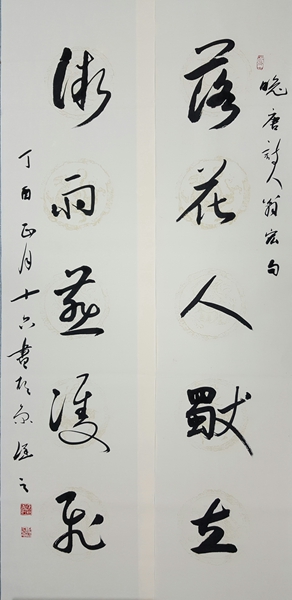 晚唐詩人翁宏句
落花人獨立
微雨燕雙飛
丁酉正月十六書於京